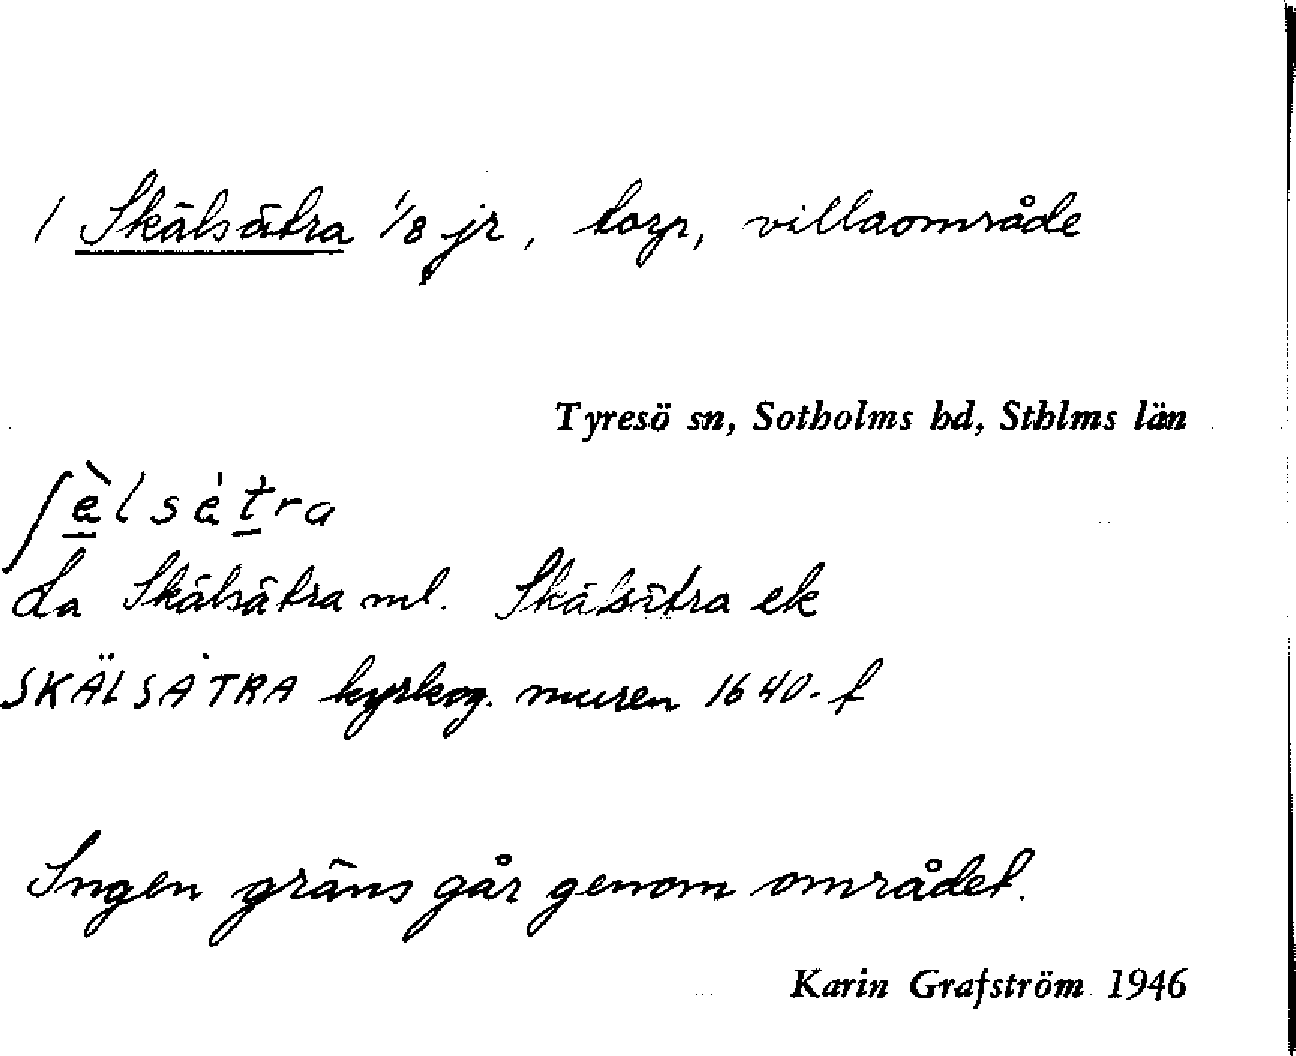 / Skälsätra 1/8 jr, torp, villaområde
Tyresö sn, Sotholms hd, Sthlms län
ʃèlsètra
La Skälsätra ml. Skälsätra ek
SKÄLSÄTRA kyrkog. muren 1640-t
Ingen gräns går genom området.
Karin Grafström 1946